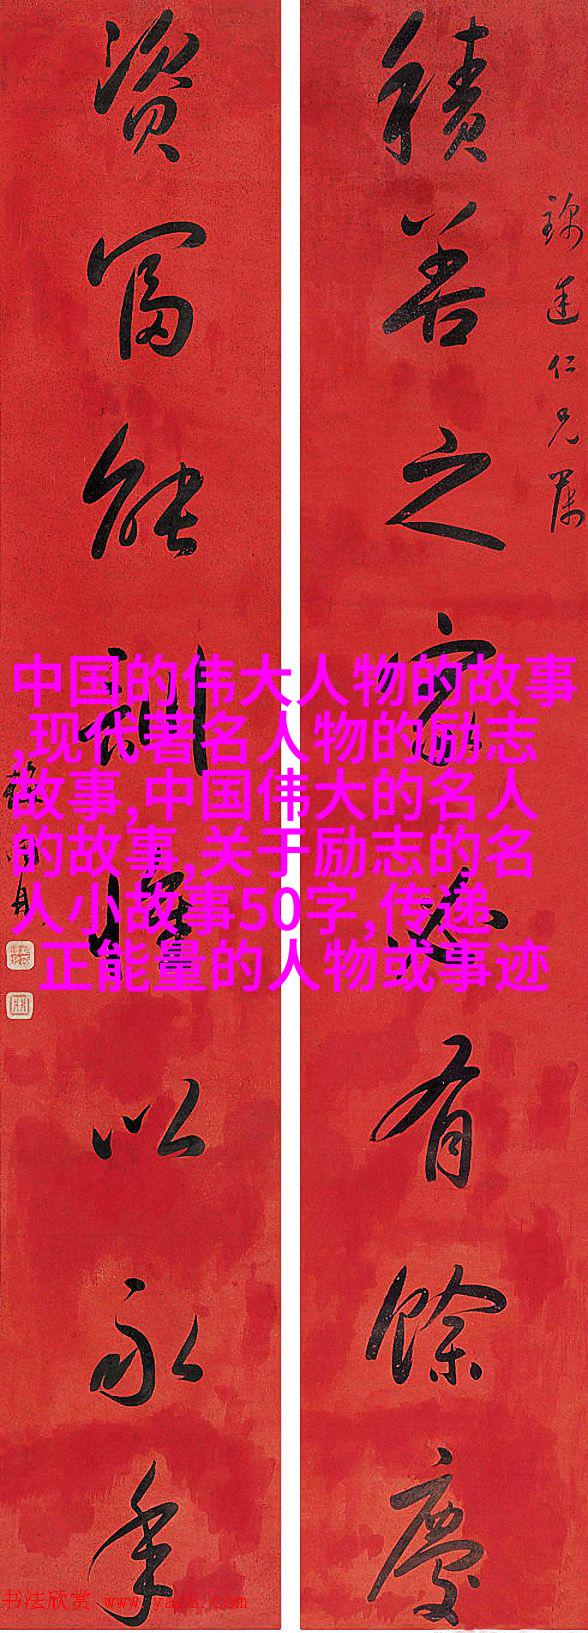 積善之家必有餘慶
仁兄屬
資富能訓惟以永年
中国的伟大人物的故事
,现代著名人物的励志
故事,中国伟大的名人
的故事,关于励志的名
人小故事50字,传递
正能量的人物或事迹
书法欣赏 www.yac8.com